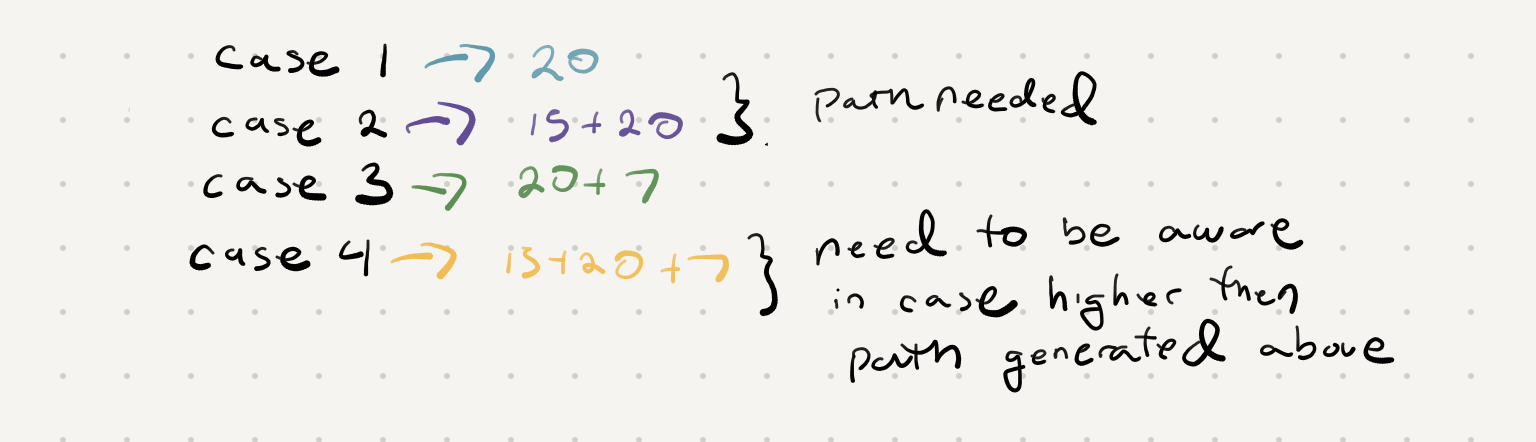 case 1 → 20
case 2 → 15+20 } path needed
case 3 → 20+7
case 4 → 15+20+7 } need to be aware
in case higher then
path generated above